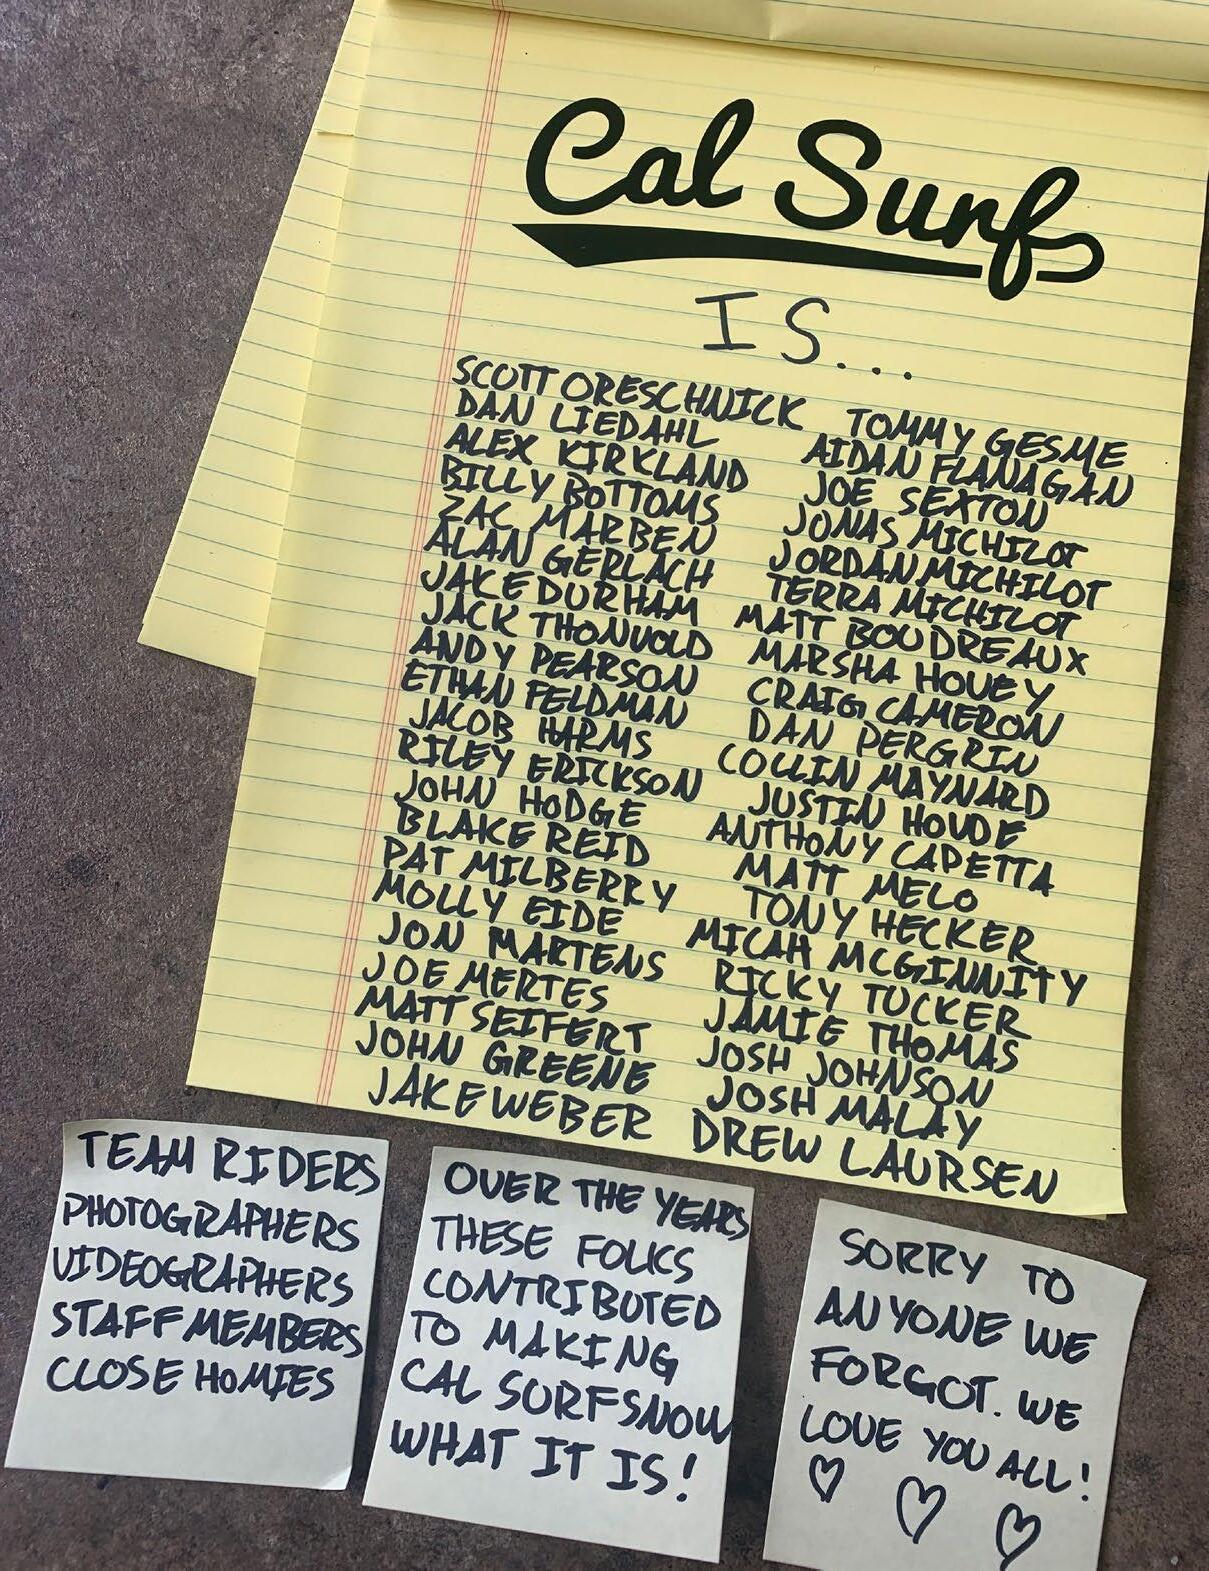 Cal Surf
IS...
SCOTT ORESCHNICK
DAN LIEDAHL
ALEX KIRKLAND
BILLY BOTTOMS
ZAC MARBEN
ALAN GERLACH
JAKE DURHAM
JACK THONVOLD
ANDY PEARSON
ETHAN FELDMAN
JACOB HARMS
RILEY ERICKSON
JOHN HODGE
BLAKE REID
PAT MILBERRY
MOLLY EIDE
JON MARTENS
JOE MERTES
MATT SEIFERT
JOHN GREENE
JAKE WEBER
TOMMY GESME
AIDAN FLANAGAN
JOE SEXTON
JONAS MICHILOT
JORDAN MICHILOT
TERRA MICHILOT
MATT BOUDREAUX
MARSHA HOVEY
CRAIG CAMERON
DAN PERGRIN
COLLIN MAYNARD
JUSTIN HOUDE
ANTHONY CAPETTA
MATT MELO
TONY HECKER
MICAH MCGINNITY
RICKY TUCKER
JAMIE THOMAS
JOSH JOHNSON
JOSH MALAY
DREW LAURSEN
TEAM RIDERS
PHOTOGRAPHERS
VIDEOGRAPHERS
STAFF MEMBERS
CLOSE HOMIES
OVER THE YEARS
THESE FOLKS
CONTRIBUTED
TO MAKING
CAL SURF SNOW
WHAT IT IS!
SORRY TO
ANYONE WE
FORGOT. WE
LOVE YOU ALL!